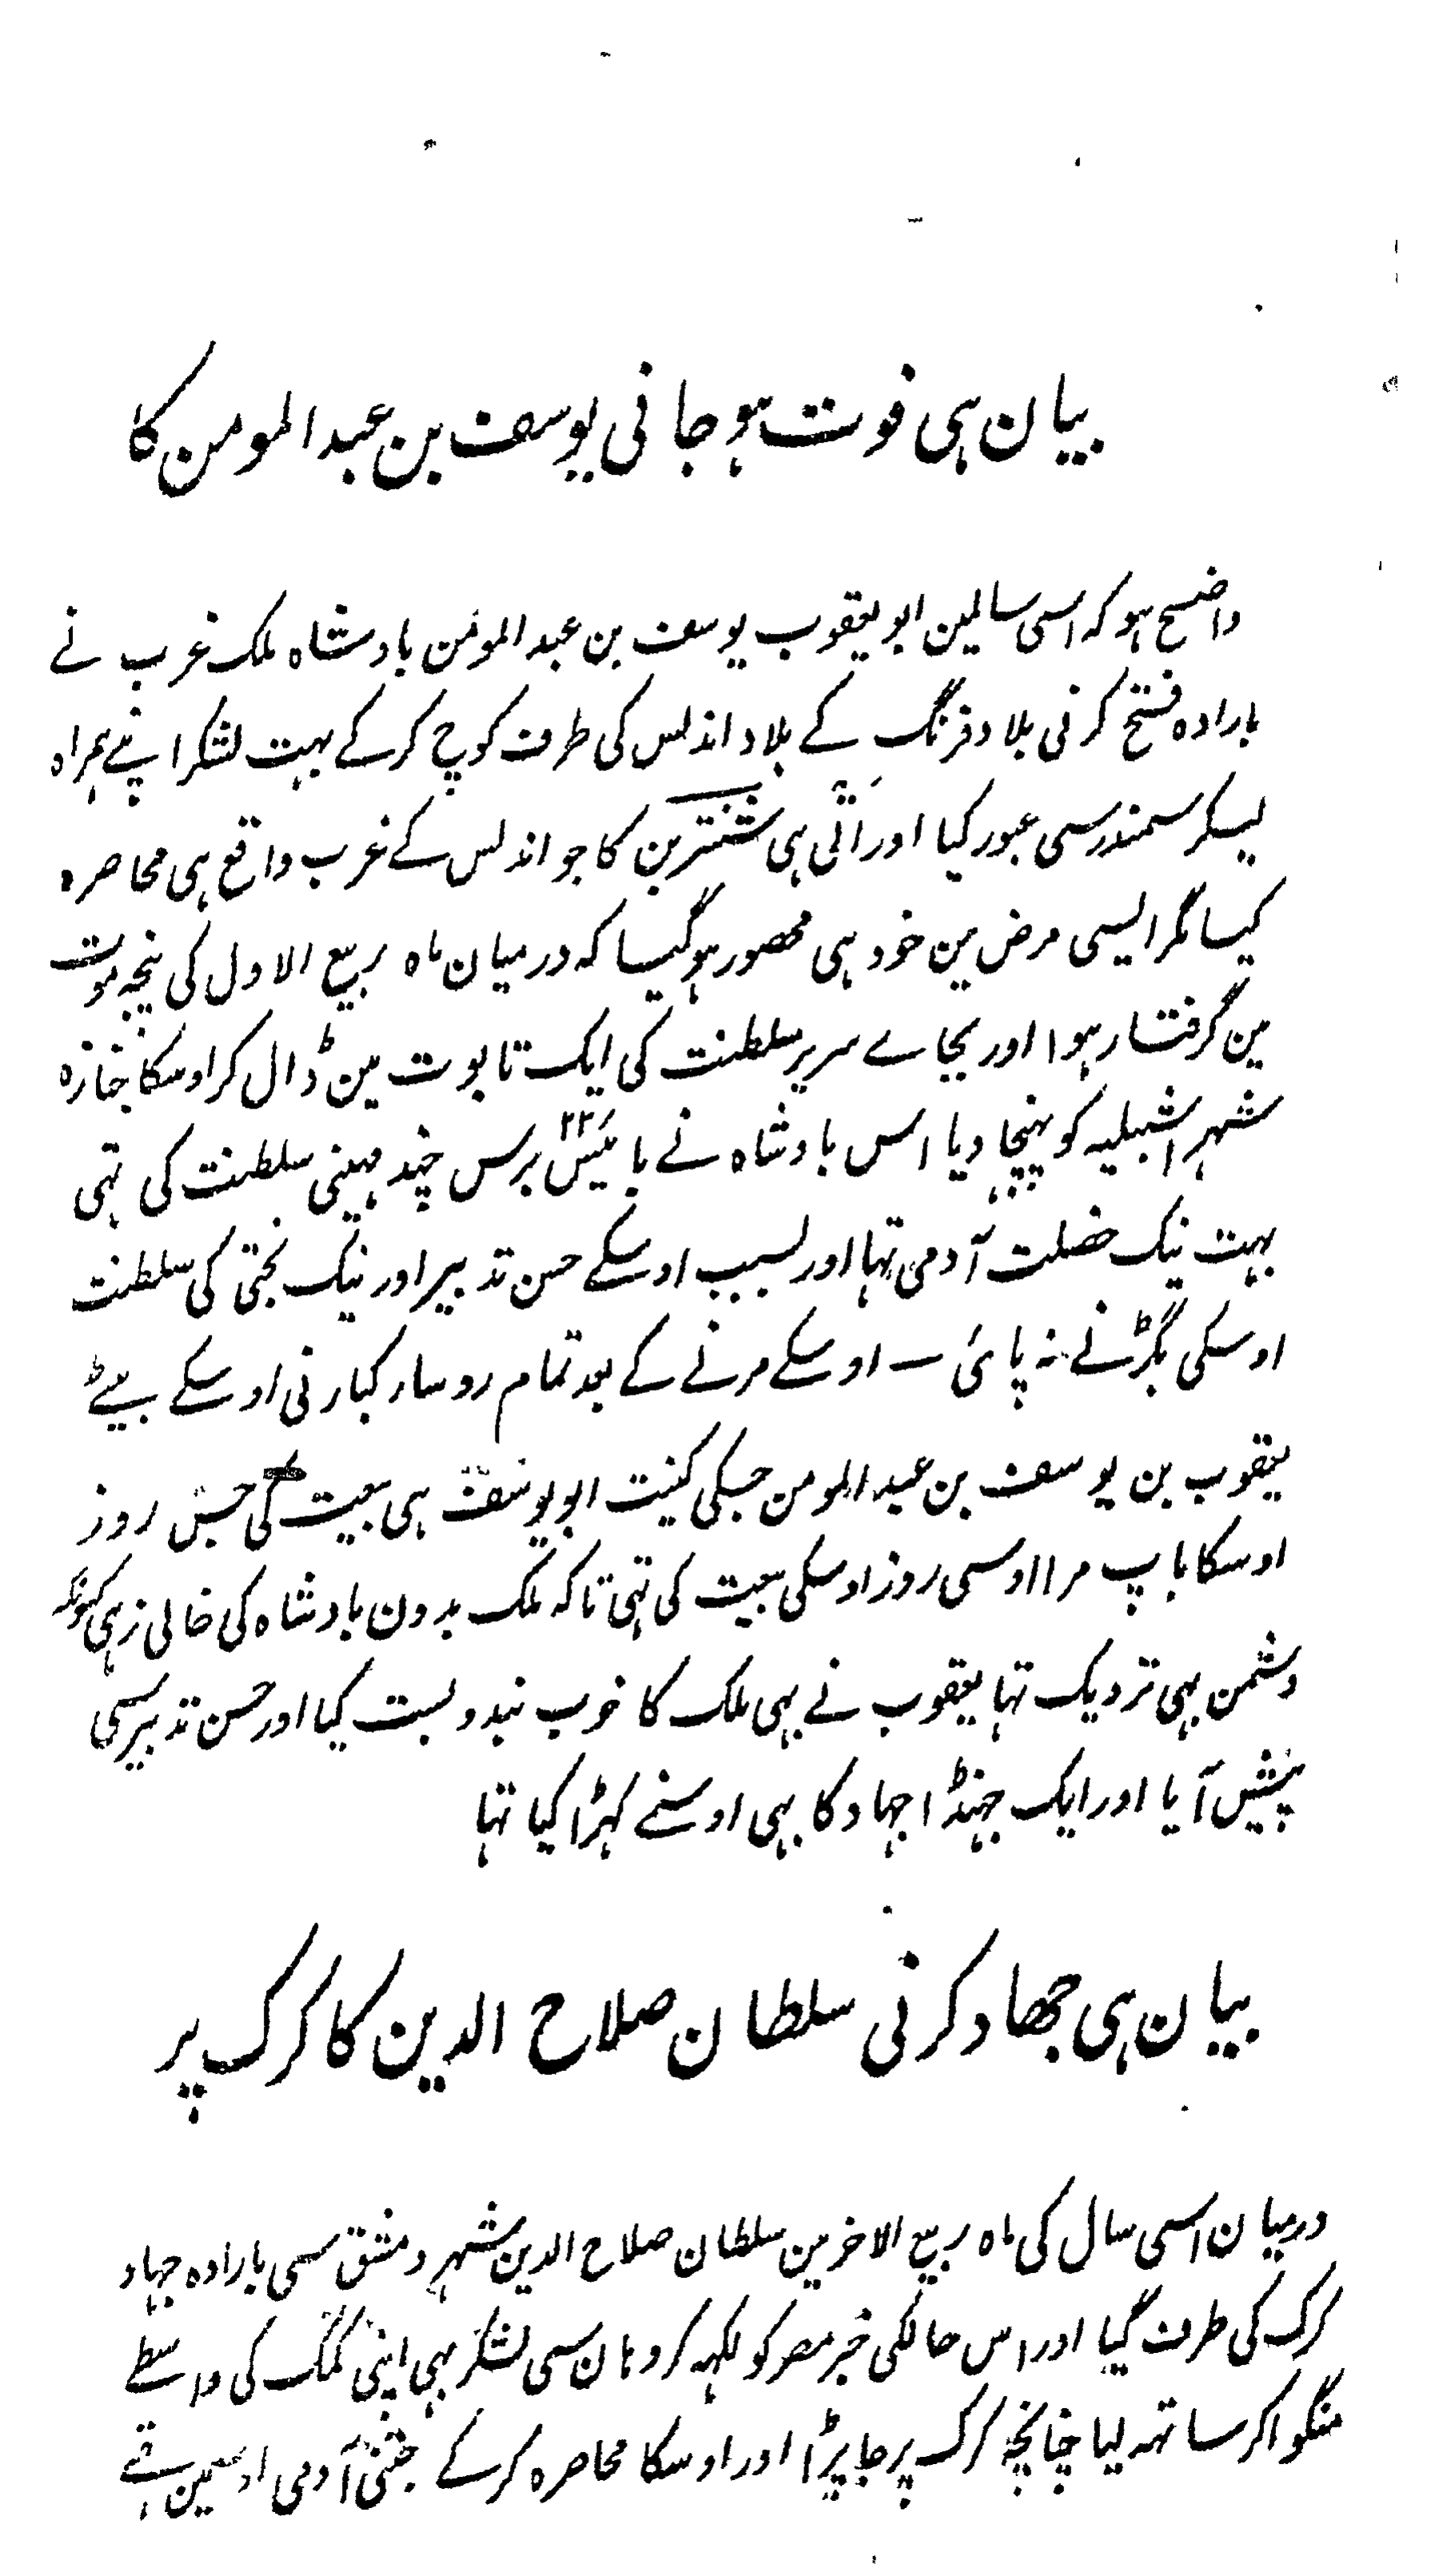 بیان ہی فوت ہو جانی یوسف بن عبد المومن کا
واضح ہو کہ اسی سالمین ابو یعقوب یوسف بن عبد المومن بادشاہ ملک غرب نے
بارادہ فتح کرنی بلاد فرنگ کے بلاد اندلس کی طرف کوچ کر کے بہت لشکر اپنے ہمراہ
لیکر سمندر سی عبور کیا اور آتی ہی شنترین کا جو اندلس کے غرب واقع ہی محاصرہ
کیا مگر ایسی مرض مین خود ہی محصور ہو گیا کہ درمیان ماہ ربیع الاول کی پنجہ موت
مین گرفتار ہوا اور بجاے سریر سلطنت کی ایک تابوت مین ڈال کر اوسکا جنازہ
شہر اشبیلیہ کو پہنچا دیا اس بادشاہ نے بائیس ۲۲ برس چند مہینی سلطنت کی تہی
بہت نیک خصلت آدمی تہا اور بسبب اوسکے حسن تدبیر اور نیک بختی کی سلطنت
اوسکی بگڑنے نہ پائی ـ اوسکے مرنے کے بعد تمام روساء کبار نی اوسکے بیٹے
یعقوب بن یوسف بن عبد المومن جسکی کنیت ابو یوسف ہی بیعت کی جس روز
اوسکا باپ مرا اوسی روز اوسکی بیعت کی تہی تاکہ ملک بدون بادشاہ کی خالی نرہی کیونکہ
دشمن بہی نزدیک تہا یعقوب نے بہی ملک کا خوب بندوبست کیا اور حسن تدبیر سی
پیش آیا اور ایک جہنڈا جہاد کا بہی اوسنے کہڑا کیا تہا
بیان ہی جھاد کرنی سلطان صلاح الدین کا کرک پر
درمیان اسی سال کی ماہ ربیع الاخر مین سلطان صلاح الدین شہر دمشق سی بارادہ جہاد
کرک کی طرف گیا اور اس حالکی خبر مصر کو لکہہ کر وہان سی لشکر بہی اپنی کمک کی واسطے
منگوا کر ساتہہ لیا چنانچہ کرک پر جا پڑا اور اوسکا محاصرہ کر کے جتنی آدمی اوسمین تہے